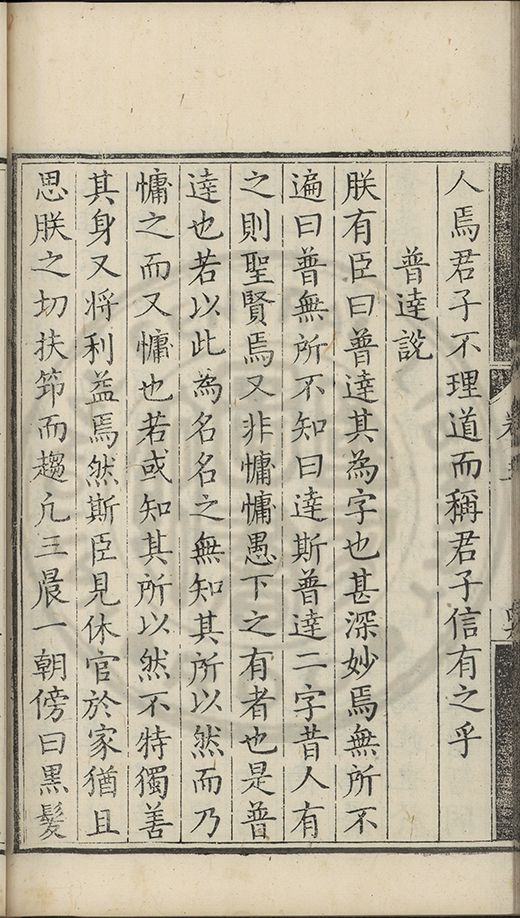 人焉君子不理道而稱君子信有之乎
普達說
朕有臣曰普達其為字也甚深妙焉無所不
遍曰普無所不知曰達斯普達二字昔人有
之則聖賢焉又非慵慵愚下之有者也是普
達也若以此為名名之無知其所以然而乃
慵之而又慵也若或知其所以然不特獨善
其身又將利益焉然斯臣見休官於家猶且
思朕之切扶笻而趨凢三晨一朝傍曰黒髪